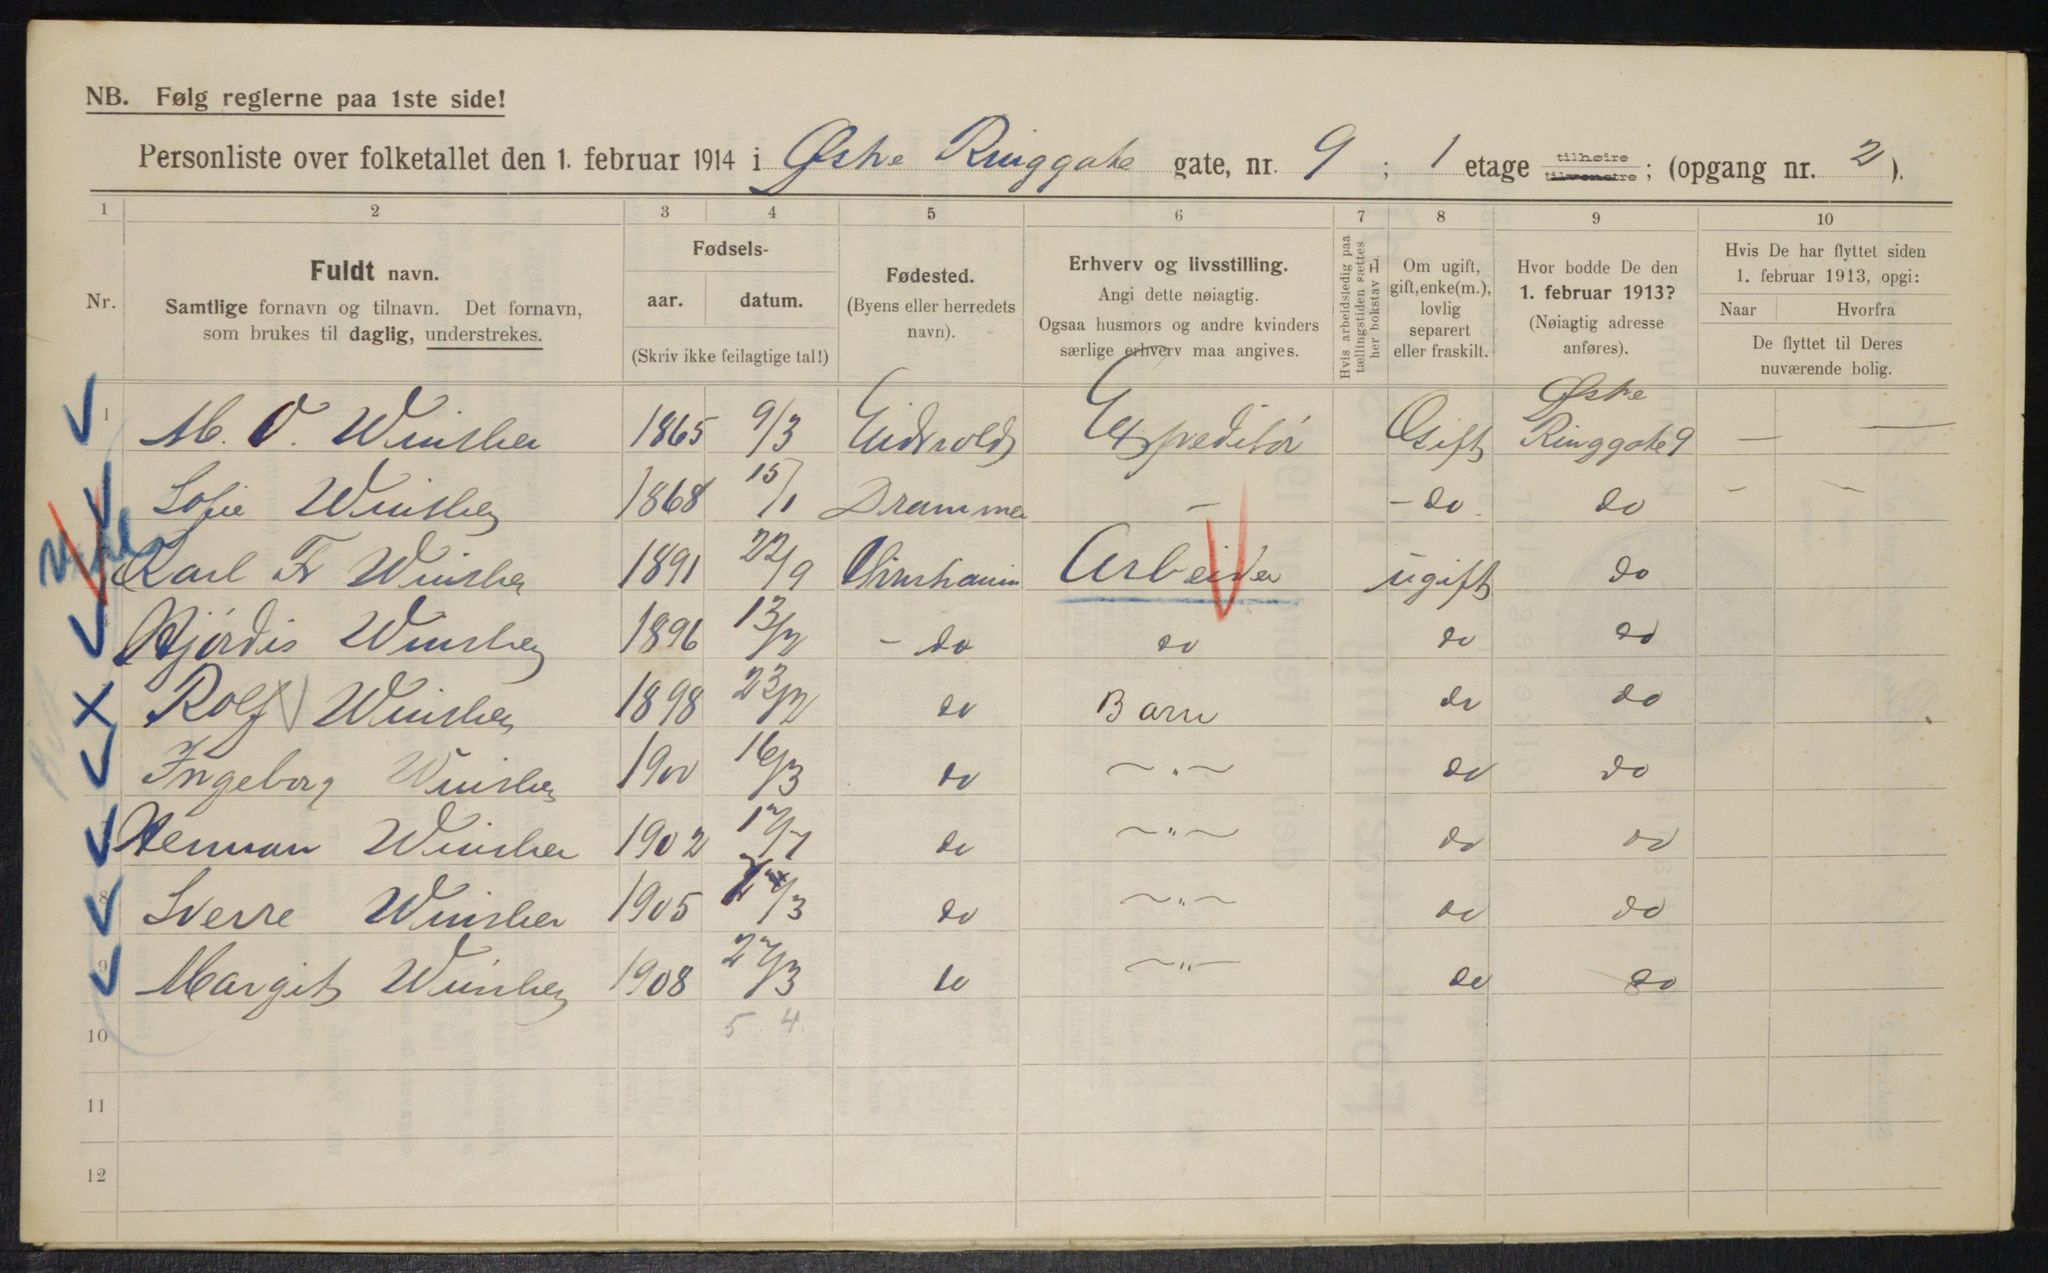 NB. Følg reglerne paa 1ste side!
Personliste over folketallet den 1. februar 1914 i Østre Ringgate gate, nr. 9 ; 1 etage tilhøire tilvenstre ; (opgang nr. 2 ).
1 2 3 4 5 6 7 8 9 10
Nr. Fuldt navn. Samtlige fornavn og tilnavn. Det fornavn, som brukes til daglig, understrekes.
Fødsels- aar. datum. (Skriv ikke feilagtige tal!)
Fødested. (Byens eller herredets navn).
Erhverv og livsstilling. Angi dette nøiagtig. Ogsaa husmors og andre kvinders særlige erhverv maa angives.
Hvis arbeidsledig paa tællingstiden sættes her bokstav H.
Om ugift, gift, enke(m.), lovlig separert eller fraskilt.
Hvor bodde De den 1. februar 1913? (Nøiagtig adresse anføres).
Hvis De har flyttet siden 1. februar 1913, opgi: Naar Hvorfra De flyttet til Deres nuværende bolig.
1 M. O. 1865 9/3 Eidsvold Expeditør Gift Østre Ringgate 9 — —
Sofie 1868 15/1 Drammen – – do do – –
Karl Fr 1891 22/9 Arbeider ugift do
Hjørdis 1896 13/2 – do do do do
Rolf 1898 23/2 do Barn do do
Ingeborg 1900 16/3 do ~ " ~ do do
7 Herman 1902 do ~ " ~ do do
8 Sverre 1905 do ~ " ~ do do
9 Margit 1908 do ~ " ~ do do
10 5 4
11
12